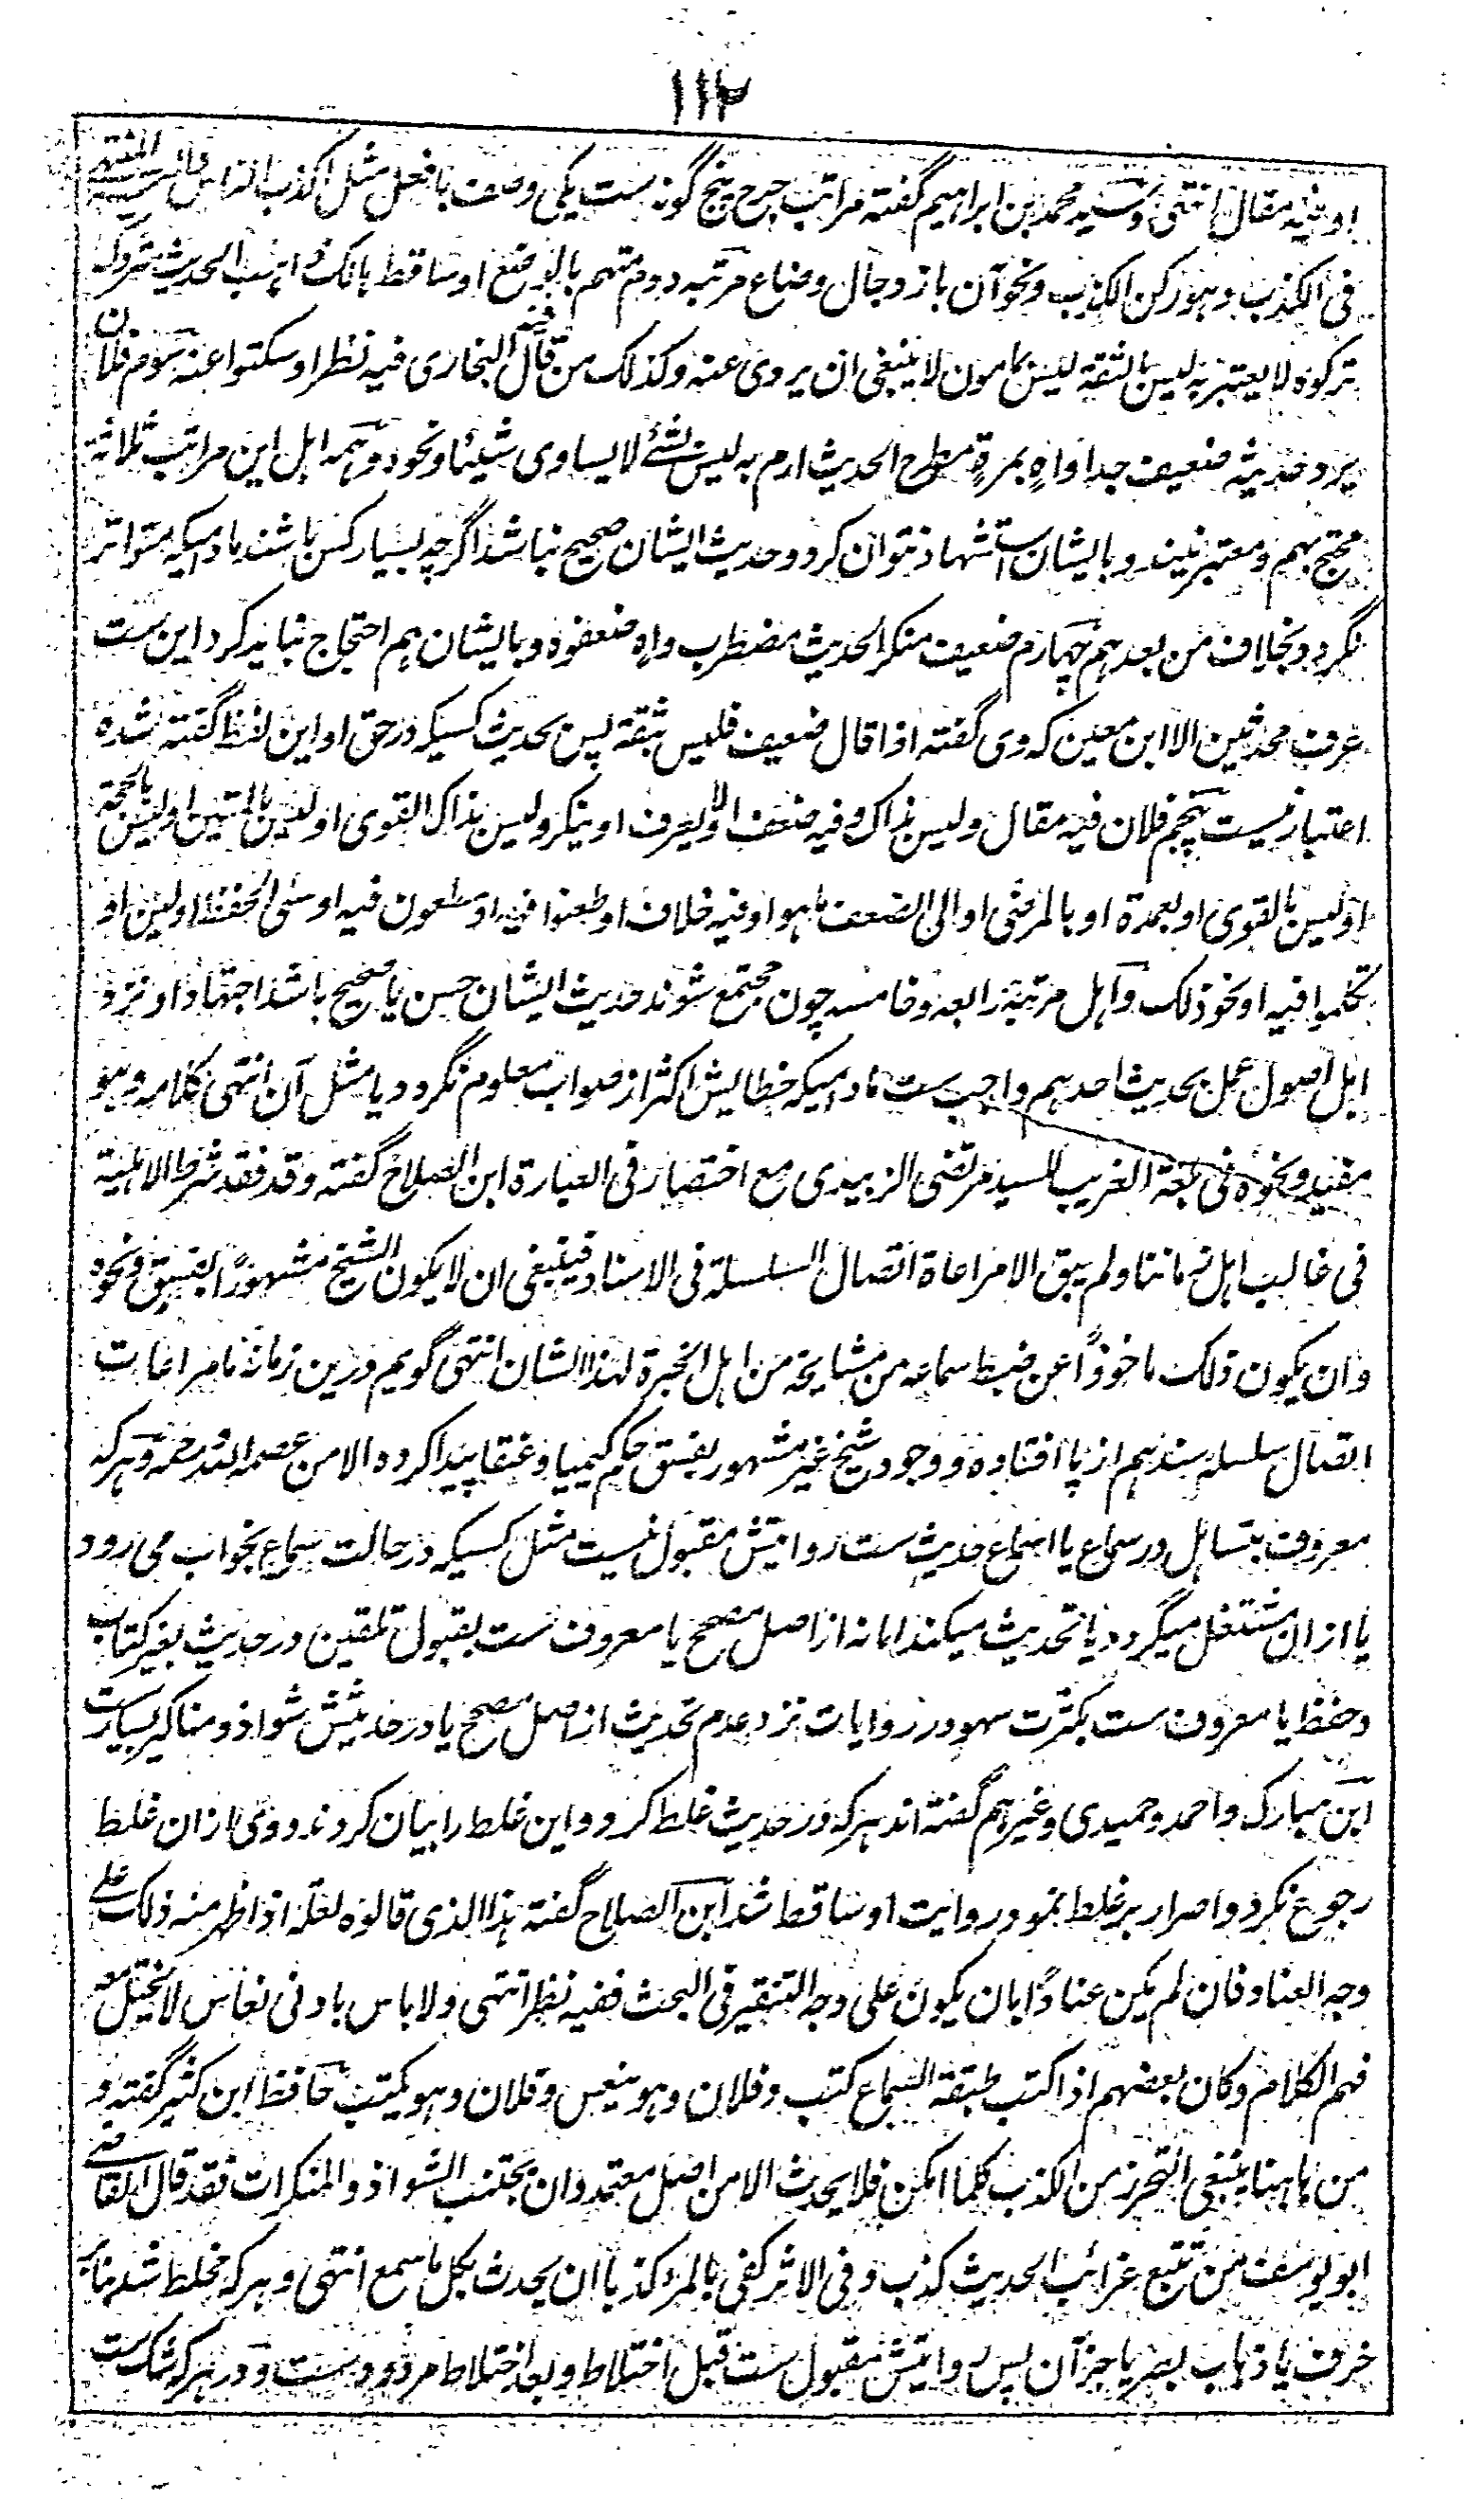 ۱۱۲
او فیه مقال انتهی و سید محمد بن ابراهیم گفته مراتب جرح پنج گونه ست یکی وصف بافعل مثل اکذب الناس الیه المنتهی
فی الکذب و هو رکن الکذب و نحو آن باز دجال وضاع مرتبه دوم متهم بالوضع او ساقط هالک ذاهب الحدیث متروک
ترکوه لا یعتبر به لیس بالثقة لیس بمامون لا ینبغی ان یروی عنه و کذلک من قال البخاری فیه نظر او سکتوا عنه سوم فلان
یرد حدیثه ضعیف جدا واهٍ بمرةٍ مطرح الحدیث ارم به لیس بشئ لا یساوی شیئا و نحوه و همه اهل این مراتب ثلاثه
محتج بهم و معتبر نیند و بایشان استشهاد نتوان کرد و حدیث ایشان صحیح نباشد اگرچه بسیار کس باشند مادامیکه متواتر
نگردد و بخلاف من بعدهم چهارم ضعیف منکر الحدیث مضطرب واهٍ ضعفوه و بایشان هم احتجاج نباید کرد این ست
عرف محدثین الا ابن معین که وی گفته اذا قال ضعیف فلیس بثقة پس بحدیث کسیکه در حق او این لفظ گفته شده
اعتبار نیست پنجم فلان فیه مقال و لیس بذاک و فیه ضعف اولا یعرف او ینکر و لیس بذاک القوی او لیس بالمتین او لیس بالحجة
او لیس بالقوی او بعمدة او بالمرضی او الی الضعف ما هو او فیه خلاف او طعنوا فیه او مطعون فیه او سئی الحفظ او لین او
تکلموا فیه او نحو ذلک و اهل مرتبهٔ رابعه و خامسه چون مجتمع شوند حدیث ایشان حسن یا صحیح باشد اجتهادا و نزد
اهل اصول عمل بحدیث احدهم واجب ست مادامیکه خطایش اکثر از صواب معلوم نگردد یا مثل آن انتهی کلامه و هو
مفید و نحوه فی بلغة الغریب للسید مرتضی الزبیدی مع اختصار فی العبارة ابن الصلاح گفته و قد فقد شرط الاهلیة
فی غالب اهل زماننا و لم یبق الا مراعاة اتصال السلسلة فی الاسناد فینبغی ان لا یکون الشیخ مشهورًا بفسق و نحوه
و ان یکون ذلک ماخوذًا عن ضبط سماعه من مشایخه من اهل الخبرة لهذا الشان انتهی گویم درین زمانه مراعات
اتصال سلسلهٔ سند هم از پا افتاده و وجود شیخ غیر مشهور بفسق حکم کیمیا و عنقا پیدا کرده الا من عصمه الله و رحمه و هرکه
معروف بتساهل در سماع یا اسماع حدیث ست روایتش مقبول نیست مثل کسیکه در حالت سماع بخواب می رود
یا از ان مشتغل میگردد یا تحدیث میکند اما نه از اصل مصحح یا معروف ست بقبول تلقین در حدیث بغیر کتاب
و حفظ یا معروف ست بکثرت سهو در روایات نزد عدم تحدیث از اصل مصحح یا در حدیثش شواذ و مناکیر بسیارست
ابن مبارک و احمد و حمیدی و غیرهم گفته اند هرکه در حدیث غلط کرد و این غلط را بیان کردند و وی از ان غلط
رجوع نکرد و اصرار بر غلط نمود روایت او ساقط شد ابن الصلاح گفته هذا الذی قالوه لعله اذا ظهر منه ذلک علی
وجه العناد فان لم یکن عنادًا بان یکون علی وجه التنقیر فی البحث ففیه نظر انتهی و لا باس بادنی نعاس لا یختل معه
فهم الکلام و کان بعضهم اذا کتب طبقة السماع کتب و فلان و هو ینعس و فلان و هو یکتب حافظ ابن کثیر گفته و
من ها هنا ینبغی التحرز من الکذب کلما امکن فلا یحدث الا من اصل معتمد و ان یجتنب الشواذ و المنکرات فقد قال القاضی
ابو یوسف من تتبع غرائب الحدیث کذب و فی الاثر کفی بالمرء کذبا ان یحدث بکل ما سمع انتهی و هرکه مخلط شد بنا بر
خرف یا ذهاب بصر یا جز آن پس روایتش مقبول ست قبل اختلاط و بعد اختلاط مردودست و در هرکه شک ست